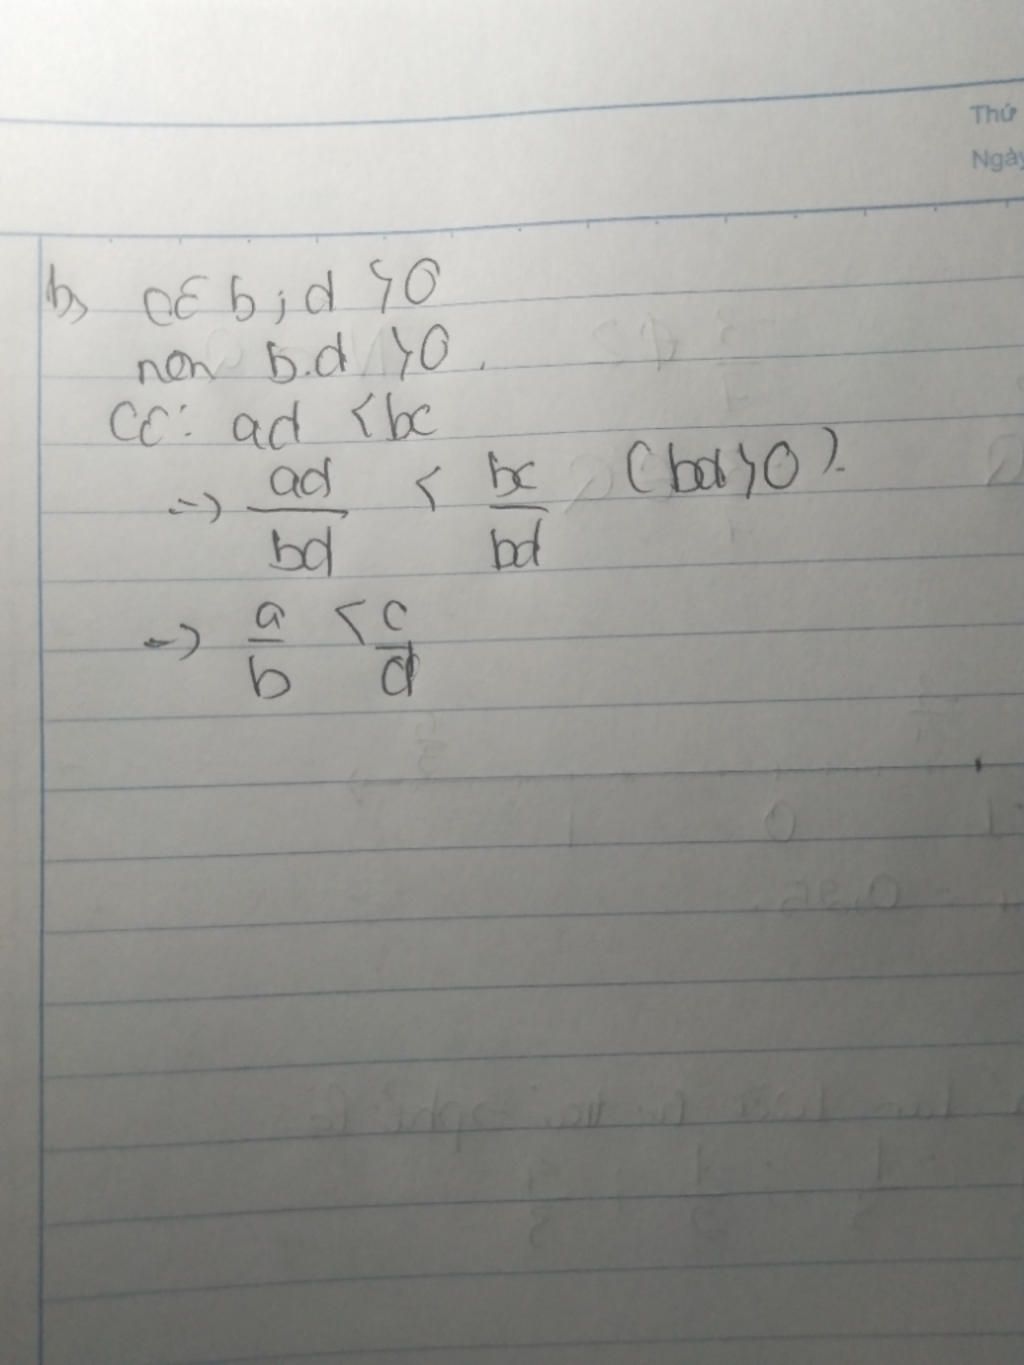 Thứ
Ngày
b, CƐ b ; d > 0
nên b.d > 0.
CƐ: ad < bc
=> ad/bd < bc/bd (bd > 0).
=> a/b < c/d